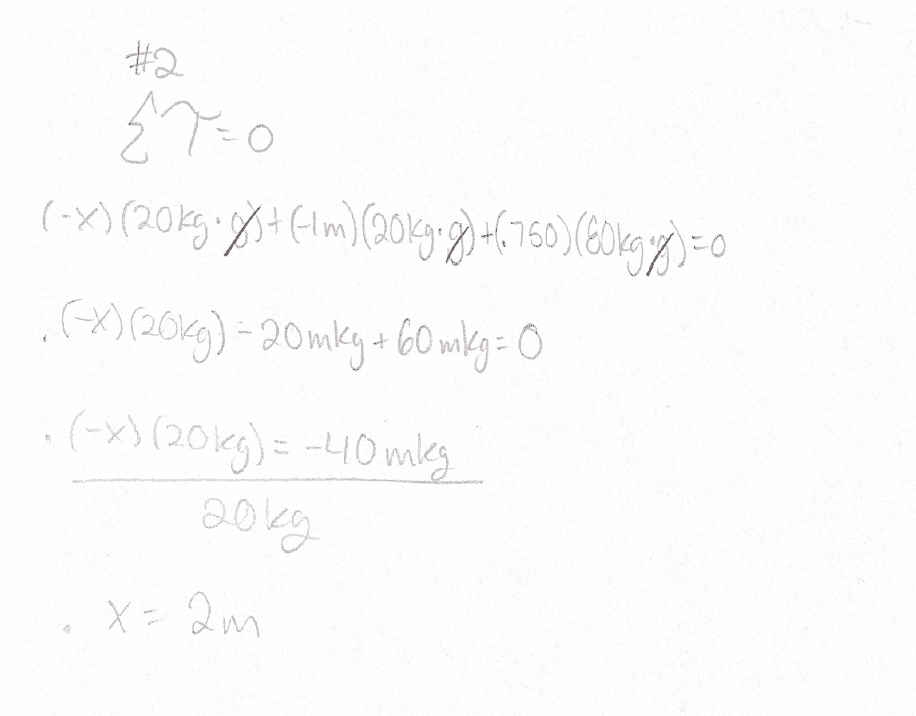 #2
Στ=0
(-x)(20kg·g)+(-1m)(20kg·g)+(.750)(80kg·g)=0
. (-x)(20kg) - 20mkg + 60mkg = 0
. (-x)(20kg) = -40mkg
20kg
. x = 2m